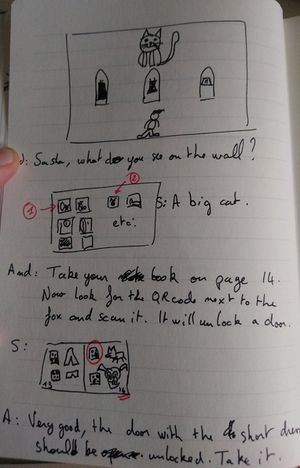 d: Sasha, what do you see on the wall?
① ②
S: A big cat.
etc.
And: Take your book on page 14.
Now look for the QR code next to the
fox and scan it. It will unlock a door.
S:
13 14
A: Very good, the door with the short
should be unlocked. Take it.